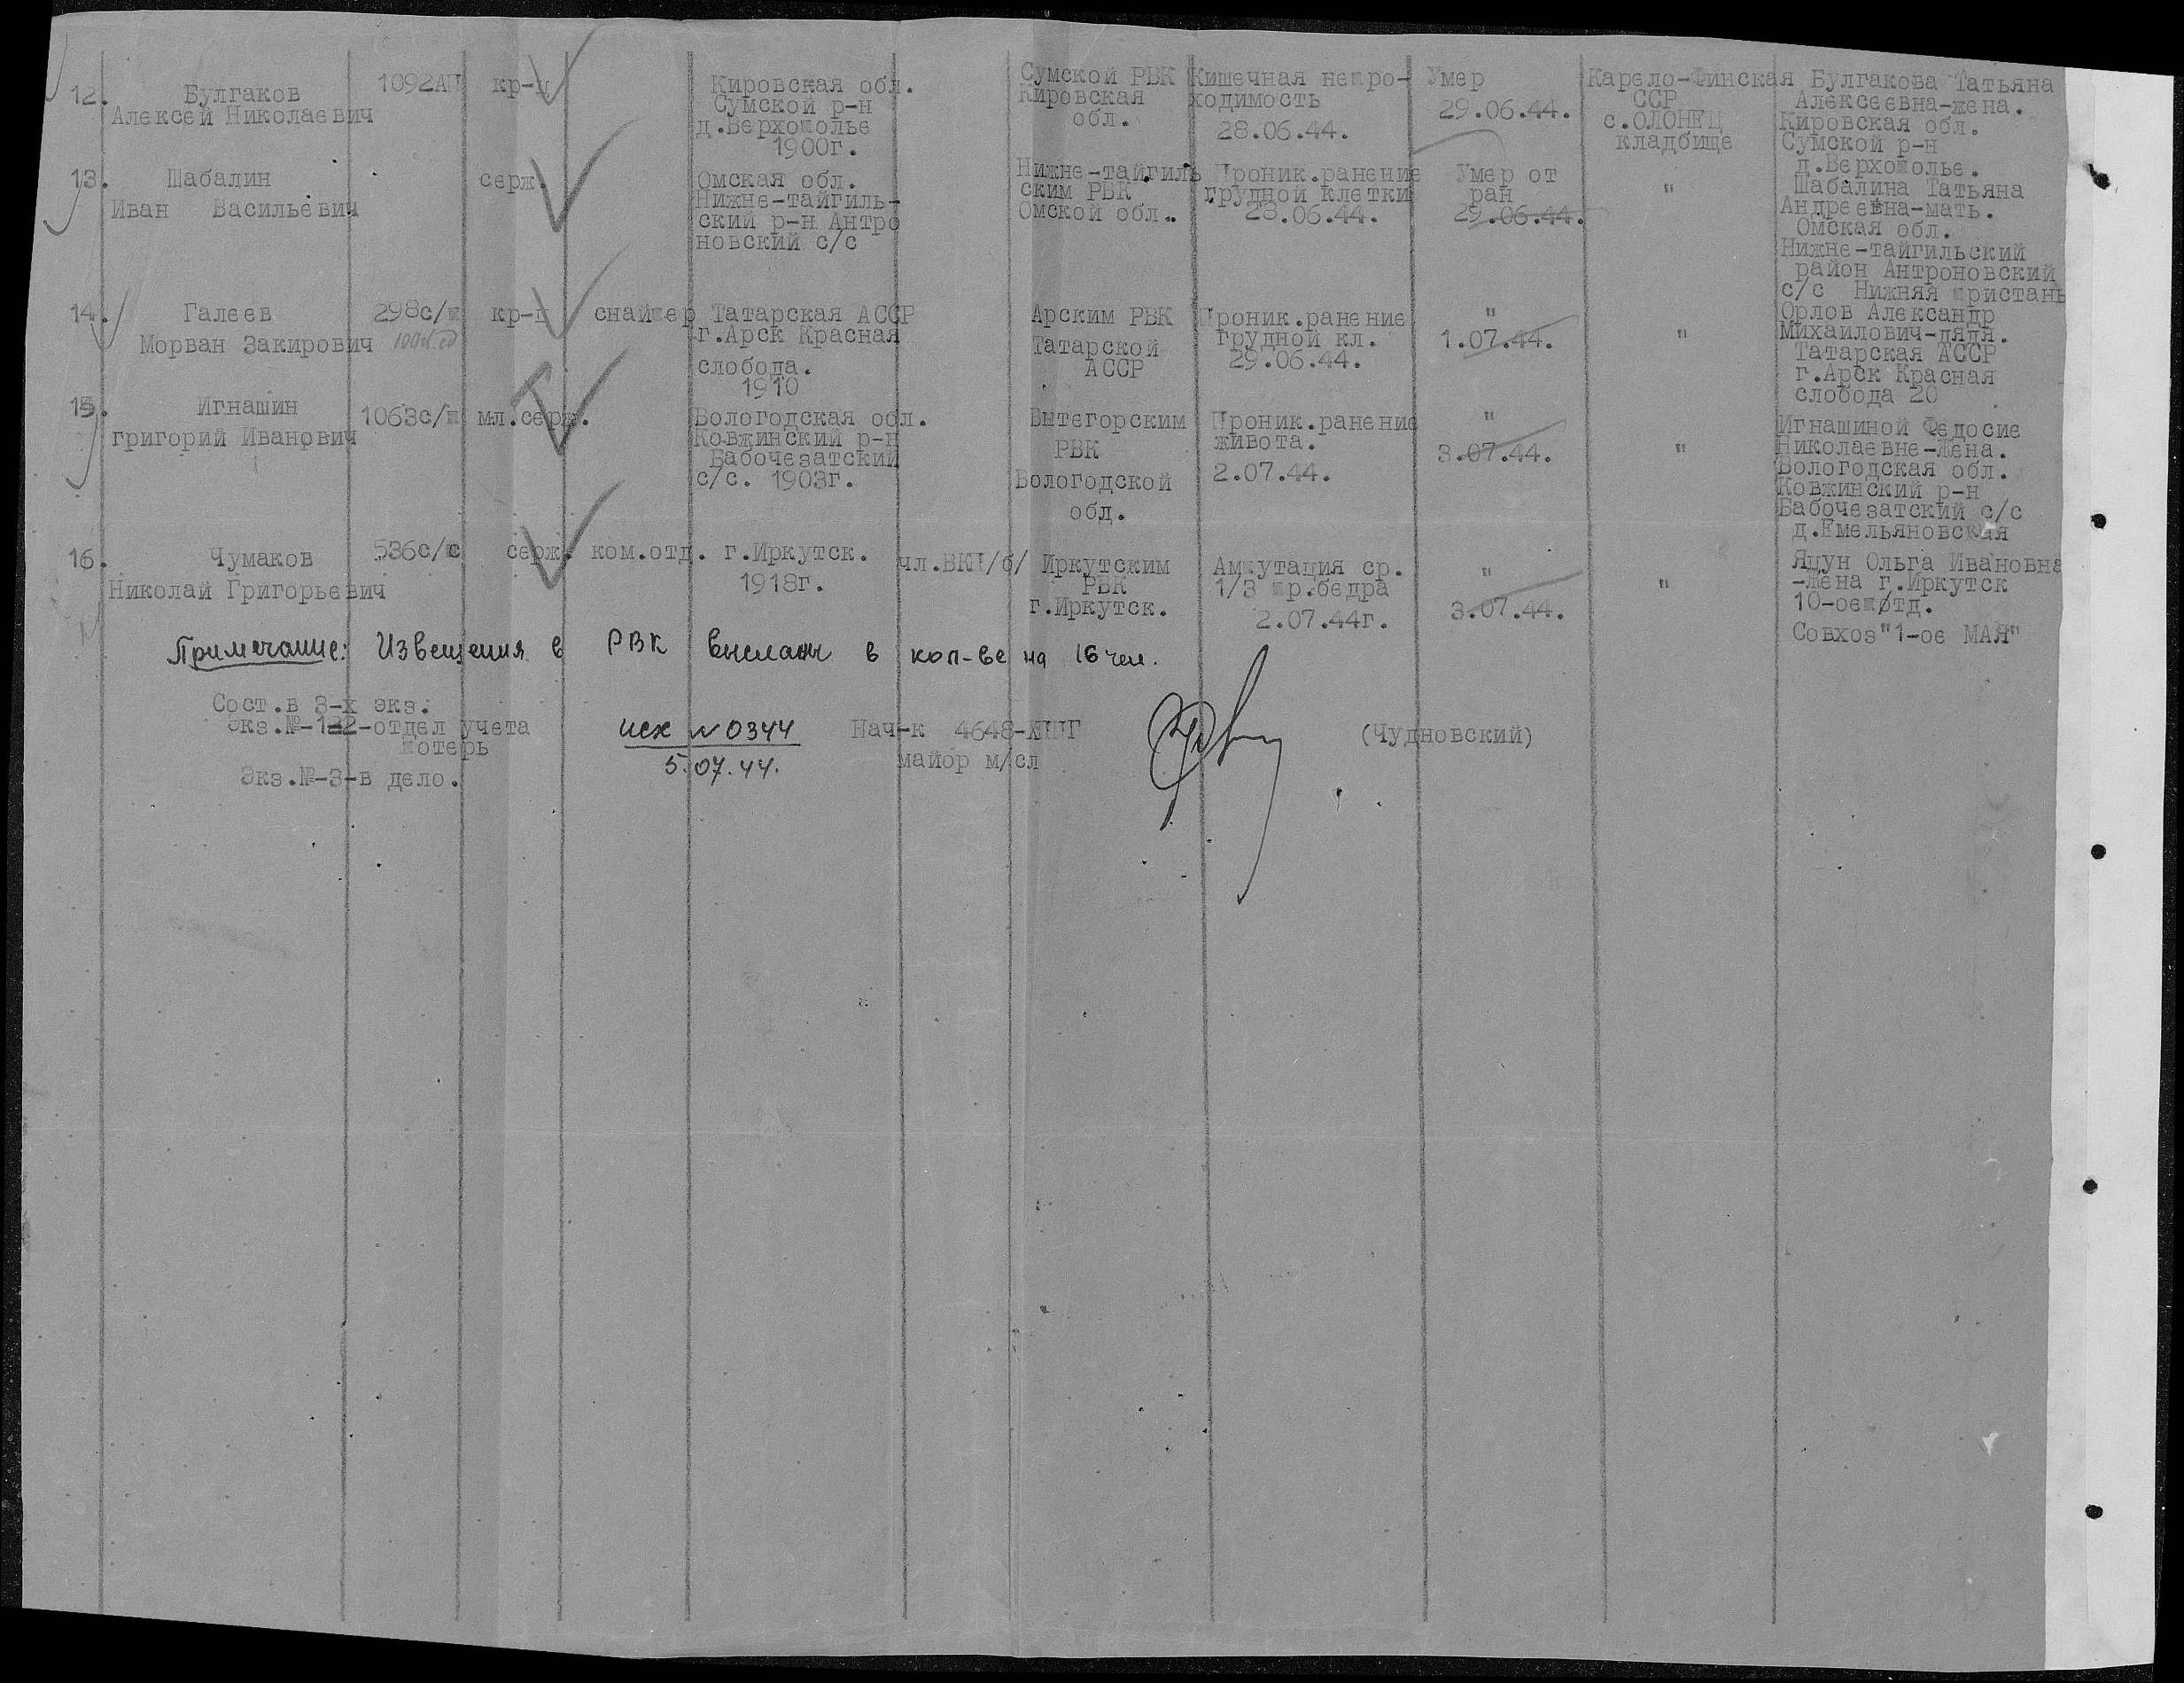 12. Булгаков
Алексей Николаевич
1092АП
кр-ц
Кировская обл.
Сумской р-н
д.Верхополье
1900г.
Сумской РВК
Кировская
обл.
Кишечная непро-
ходимость
28.06.44.
Умер
29.06.44.
Карело-Финская
ССР
с.ОЛОНЕЦ
кладбище
Булгакова Татьяна
Алексеевна-жена.
Кировская обл.
Сумской р-н
д.Верхополье.
13. Шабалин
Иван Васильевич
серж.
Омская обл.
Нижне-тайгиль-
ский р-н Антро
новский с/с
Нижне-тайгиль
ским РВК
Омской обл..
Проник.ранение
грудной клетки
28.06.44.
Умер от
ран
29.06.44.
"
Шабалина Татьяна
Андреевна-мать.
Омская обл.
Нижне-тайгильский
район Антроновский
с/с Нижняя пристань
14. Галеев
Морван Закирович
298с/п
кр-ц
снайпер
Татарская АССР
г.Арск Красная
слобода.
1910
Арским РВК
Татарской
АССР
Проник.ранение
грудной кл.
29.06.44.
"
1.07.44.
"
Орлов Александр
Михаилович-дядя.
Татарская АССР
г.Арск Красная
слобода 20
15. Игнашин
григорий Иванович
1063с/п
мл.серж.
Вологодская обл.
Ковжинский р-н
Бабочезатский
с/с. 1903г.
Вытегорским
РВК
Вологодской
обд.
Проник.ранение
живота.
2.07.44.
"
3.07.44.
"
Игнашиной Федосие
Николаевне-жена.
Вологодская обл.
Ковжинский р-н
Бабочезатский с/с
д.Емельяновская
16. Чумаков
Николай Григорьевич
536с/п
серж.
ком.отд.
г.Иркутск.
1918г.
чл.ВКП/б/
Иркутским
РВК
г.Иркутск.
Ампутация ср.
1/3 пр.бедра
2.07.44г.
"
3.07.44.
"
Яцун Ольга Ивановна
-жена г.Иркутск
10-ое отд.
Совхоз"1-ое МАЯ"
Примечание: Извещения в РВК высланы в кол-ве на 16 чел.
Сост.в 3-х экз.
Экз.№-1-2-отдел учета
потерь
Экз.№-3-в дело.
исх № 0344
5.07.44.
Нач-к 4648-ХППГ
майор м/сл
(Чудновский)